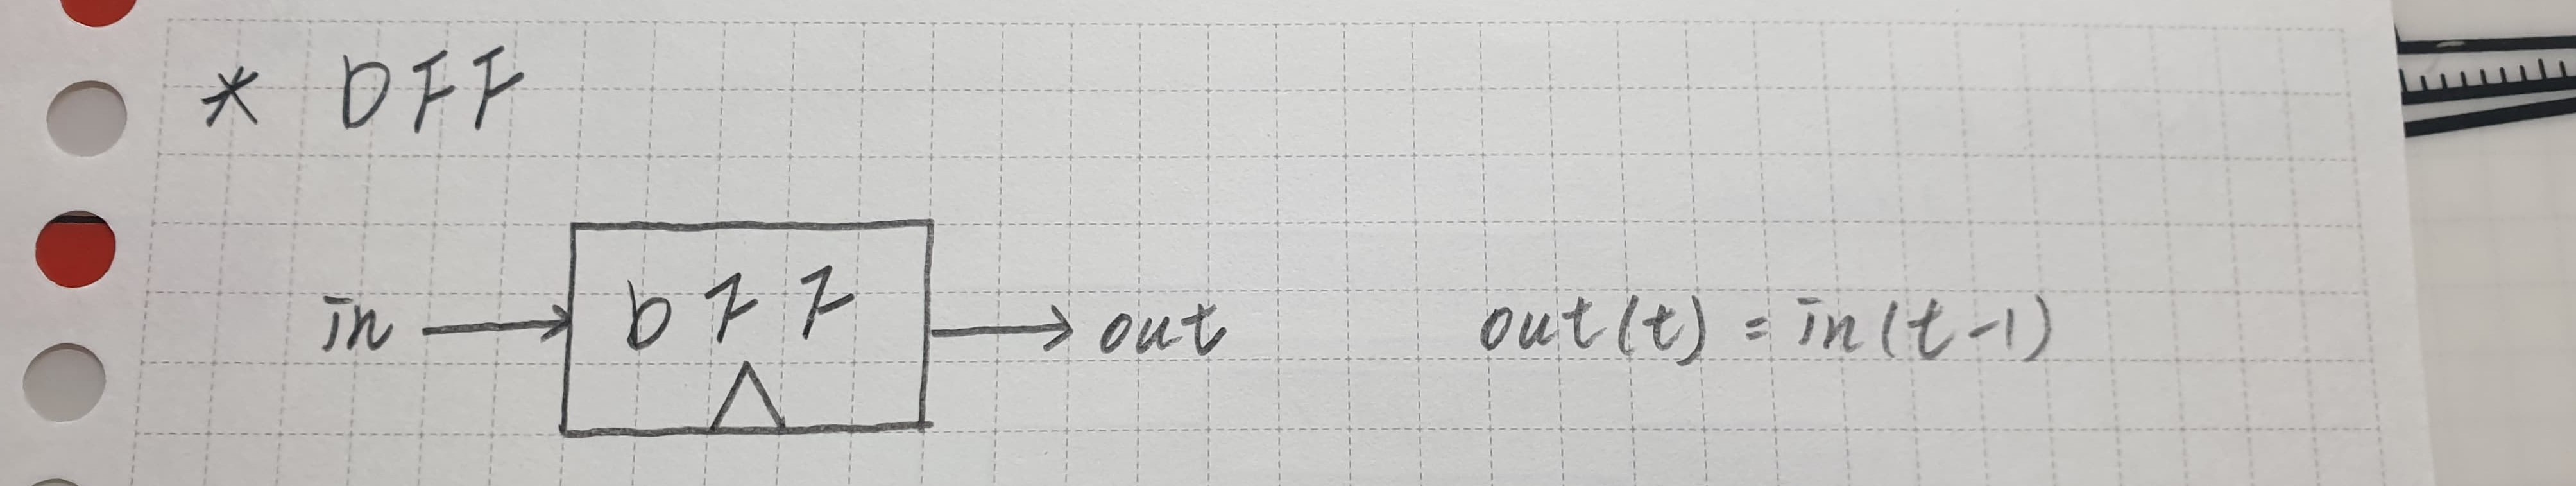 * DFF
in → DFF → out out(t) = in(t-1)